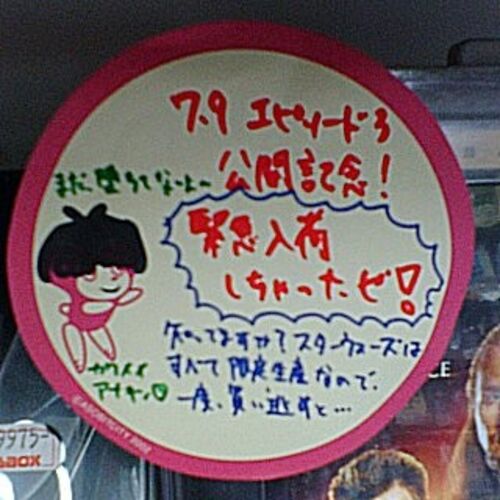 7.9 エピソード3
公開記念!
まだ、堕ちてなーよ~
緊急入荷
しちゃったゼ!
カワイイ
アナキン♡
知ってますか?スターウォーズは
すべて限定生産なので、
一度、買い逃すと…
9975-
BOX
CE